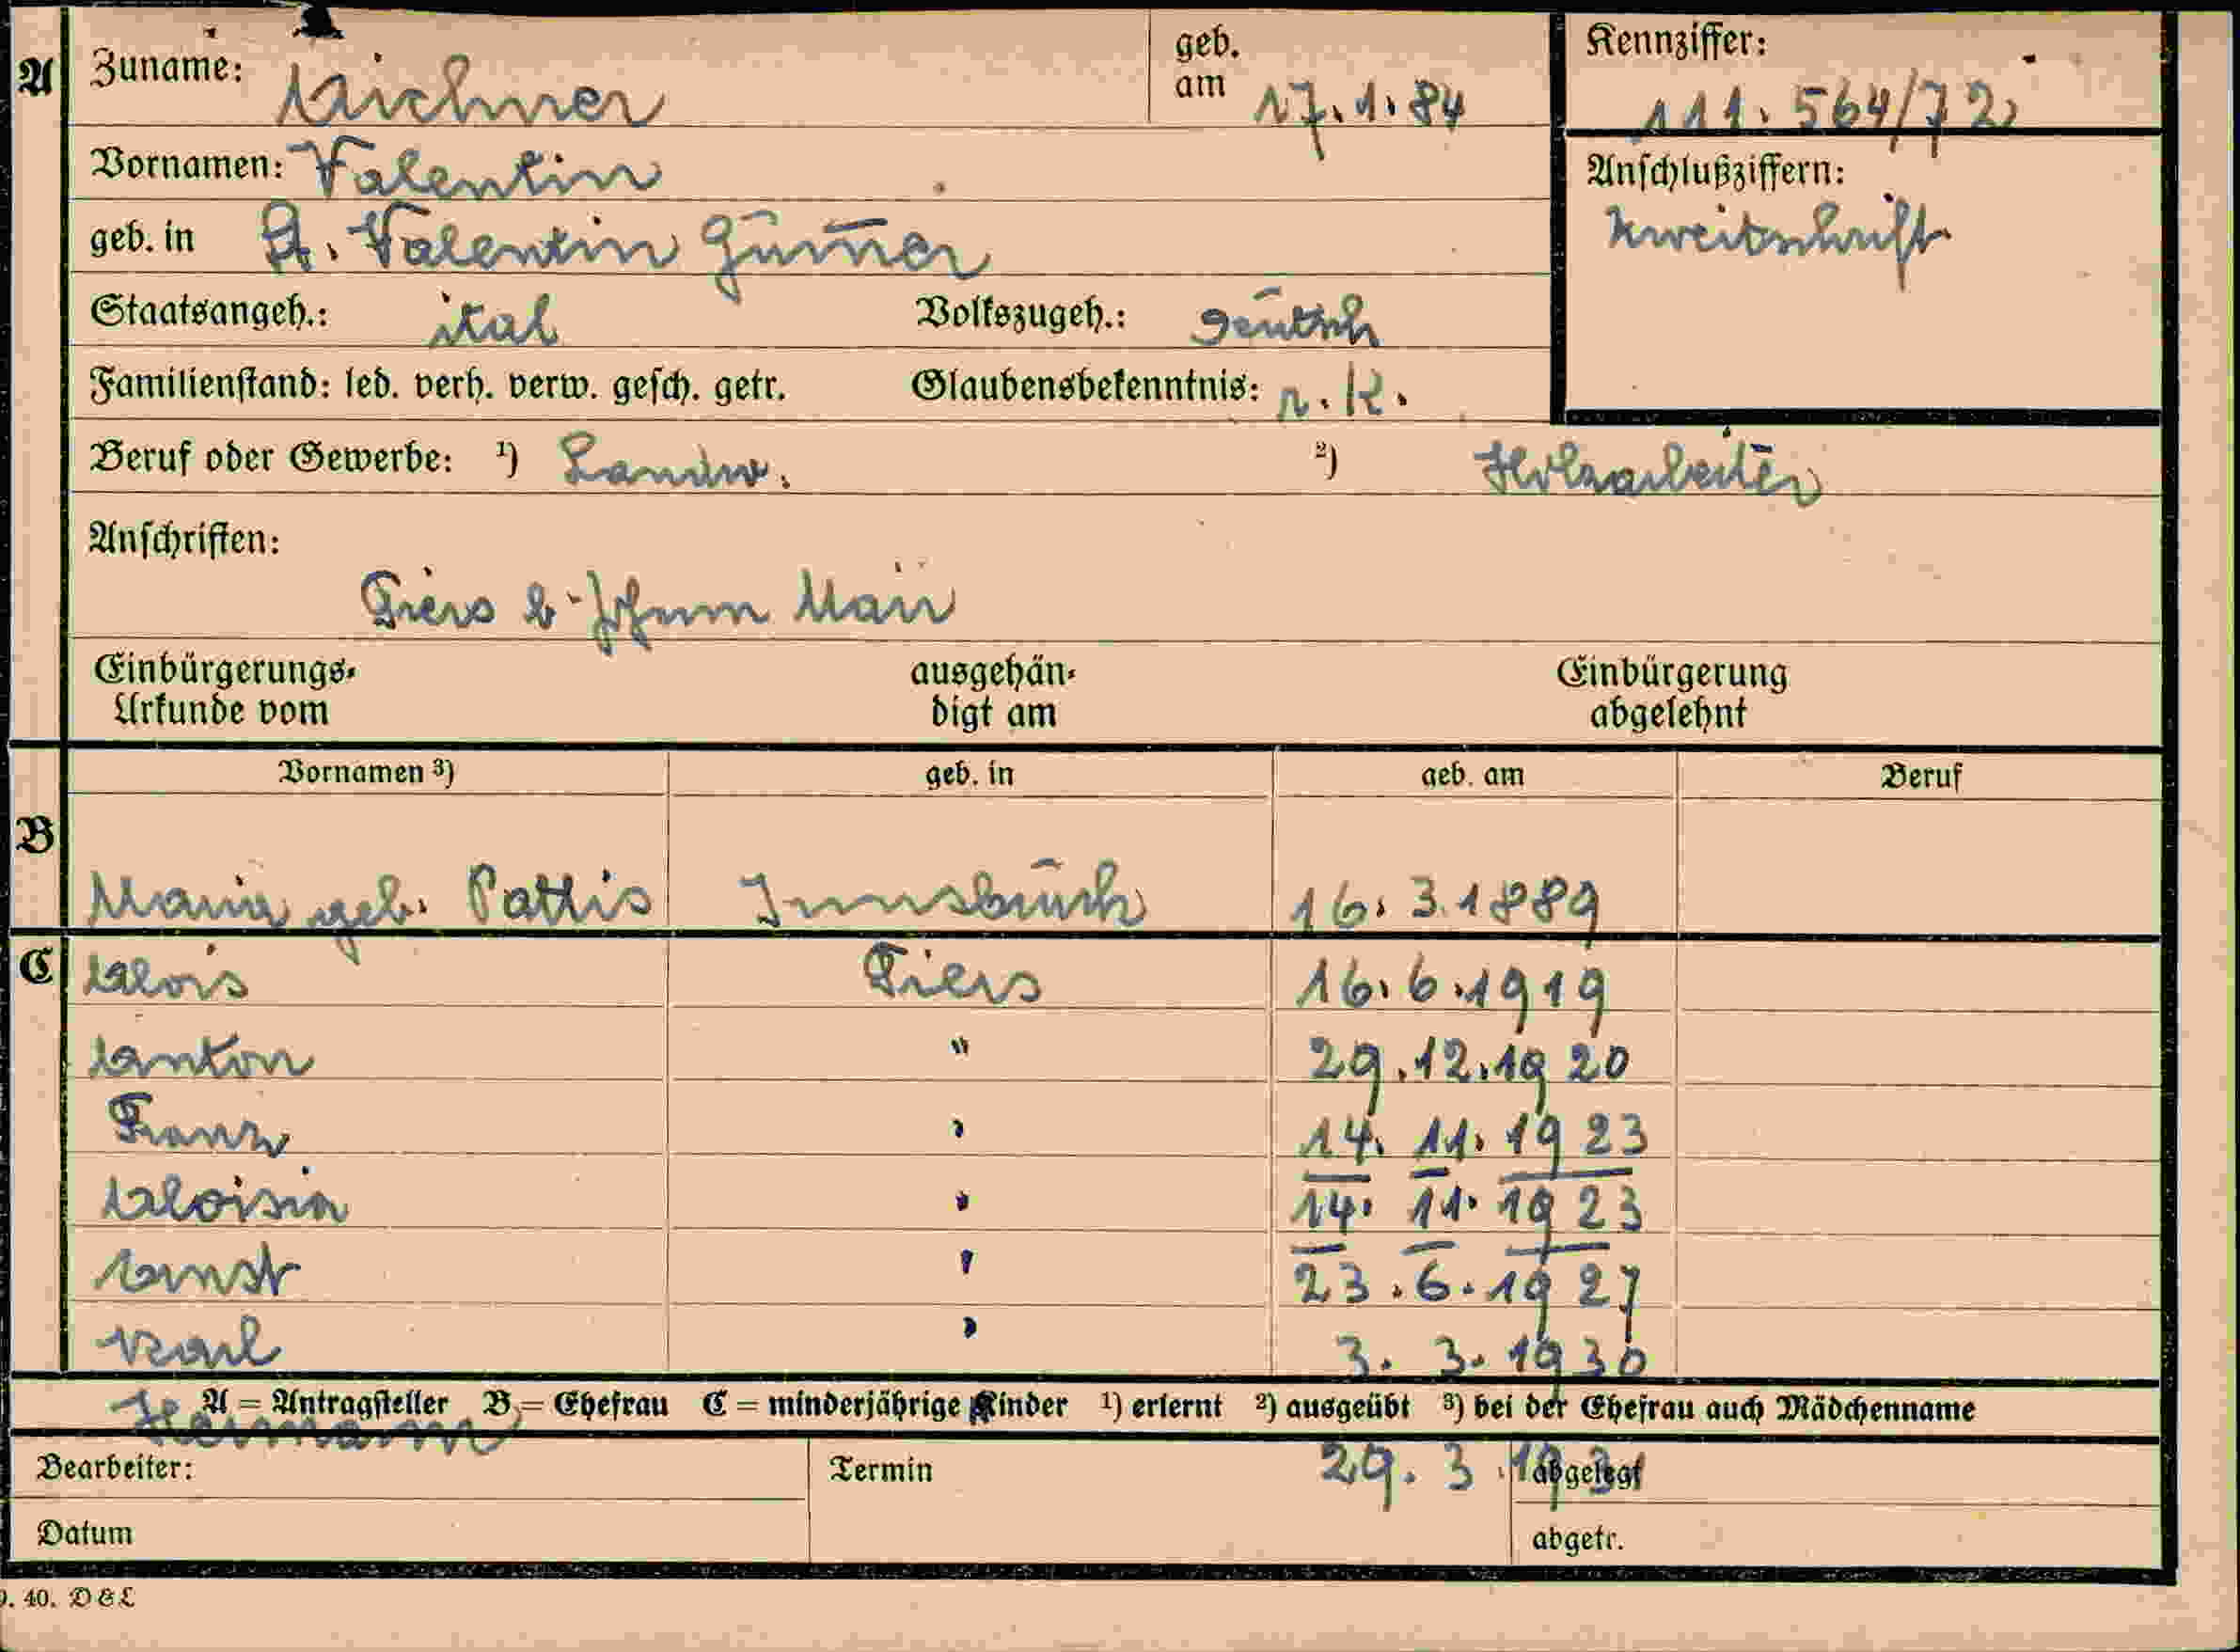 A Zuname: Aichner geb. am 17.1.84 Kennziffer: 111.564/72
Vornamen: Valentin Anschlußziffern:
geb. in St. Valentin Gummer Zweitschrift
Staatsangeh.: ital Volkszugeh.: deutsch
Familienstand: led. verh. verw. gesch. getr. Glaubensbekenntnis: r. k.
Beruf oder Gewerbe: ¹) Landw. ²) Holzarbeiter
Anschriften:
Tiers b. Johann Mair
Einbürgerungs- ausgehän- Einbürgerung
Urkunde vom digt am abgelehnt
Vornamen ³) geb. in geb. am Beruf
B
Maria geb. Pattis Innsbruck 16.3.1889
C Alois Tiers 16.6.1919
Anton " 29.12.1920
Franz " 14.11.1923
Aloisia " 14.11.1923
Ernst " 23.6.1927
Karl " 3.3.1930
A = Antragsteller B = Ehefrau C = minderjährige Kinder ¹) erlernt ²) ausgeübt ³) bei der Ehefrau auch Mädchenname
Hermann 29.3.1931
Bearbeiter: Termin abgelegt
Datum abgetr.
9. 40. D & L